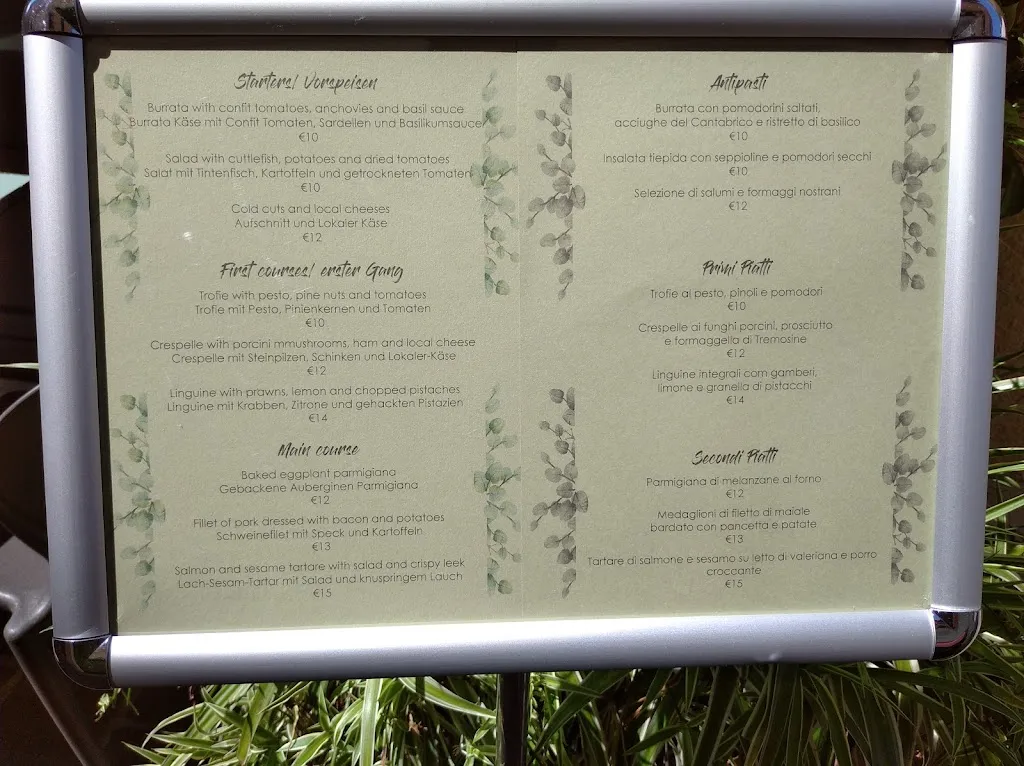 Starters/ Vorspeisen
Burrata with confit tomatoes, anchovies and basil sauce
Burrata Käse mit Confit Tomaten, Sardellen und Basilikumsauce
€10
Salad with cuttlefish, potatoes and dried tomatoes
Salat mit Tintenfisch, Kartoffeln und getrockneten Tomaten
€10
Cold cuts and local cheeses
Aufschnitt und Lokaler Käse
€12
First courses/ erster Gang
Trofie with pesto, pine nuts and tomatoes
Trofie mit Pesto, Pinienkernen und Tomaten
€10
Crespelle with porcini mmushrooms, ham and local cheese
Crespelle mit Steinpilzen, Schinken und Lokaler-Käse
€12
Linguine with prawns, lemon and chopped pistaches
Linguine mit Krabben, Zitrone und gehackten Pistazien
€14
Main course
Baked eggplant parmigiana
Gebackene Auberginen Parmigiana
€12
Fillet of pork dressed with bacon and potatoes
Schweinefilet mit Speck und Kartoffeln
€13
Salmon and sesame tartare with salad and crispy leek
Lach-Sesam-Tartar mit Salad und knuspringem Lauch
€15
Antipasti
Burrata con pomodorini saltati,
acciughe del Cantabrico e ristretto di basilico
€10
Insalata tiepida con seppioline e pomodori secchi
€10
Selezione di salumi e formaggi nostrani
€12
Primi Piatti
Trofie al pesto, pinoli e pomodori
€10
Crespelle ai funghi porcini, prosciutto
e formaggella di Tremosine
€12
Linguine integrali com gamberi,
limone e granella di pistacchi
€14
Secondi Piatti
Parmigiana di melanzane al forno
€12
Medaglioni di filetto di maiale
bardato con pancetta e patate
€13
Tartare di salmone e sesamo su letto di valeriana e porro
croccante
€15